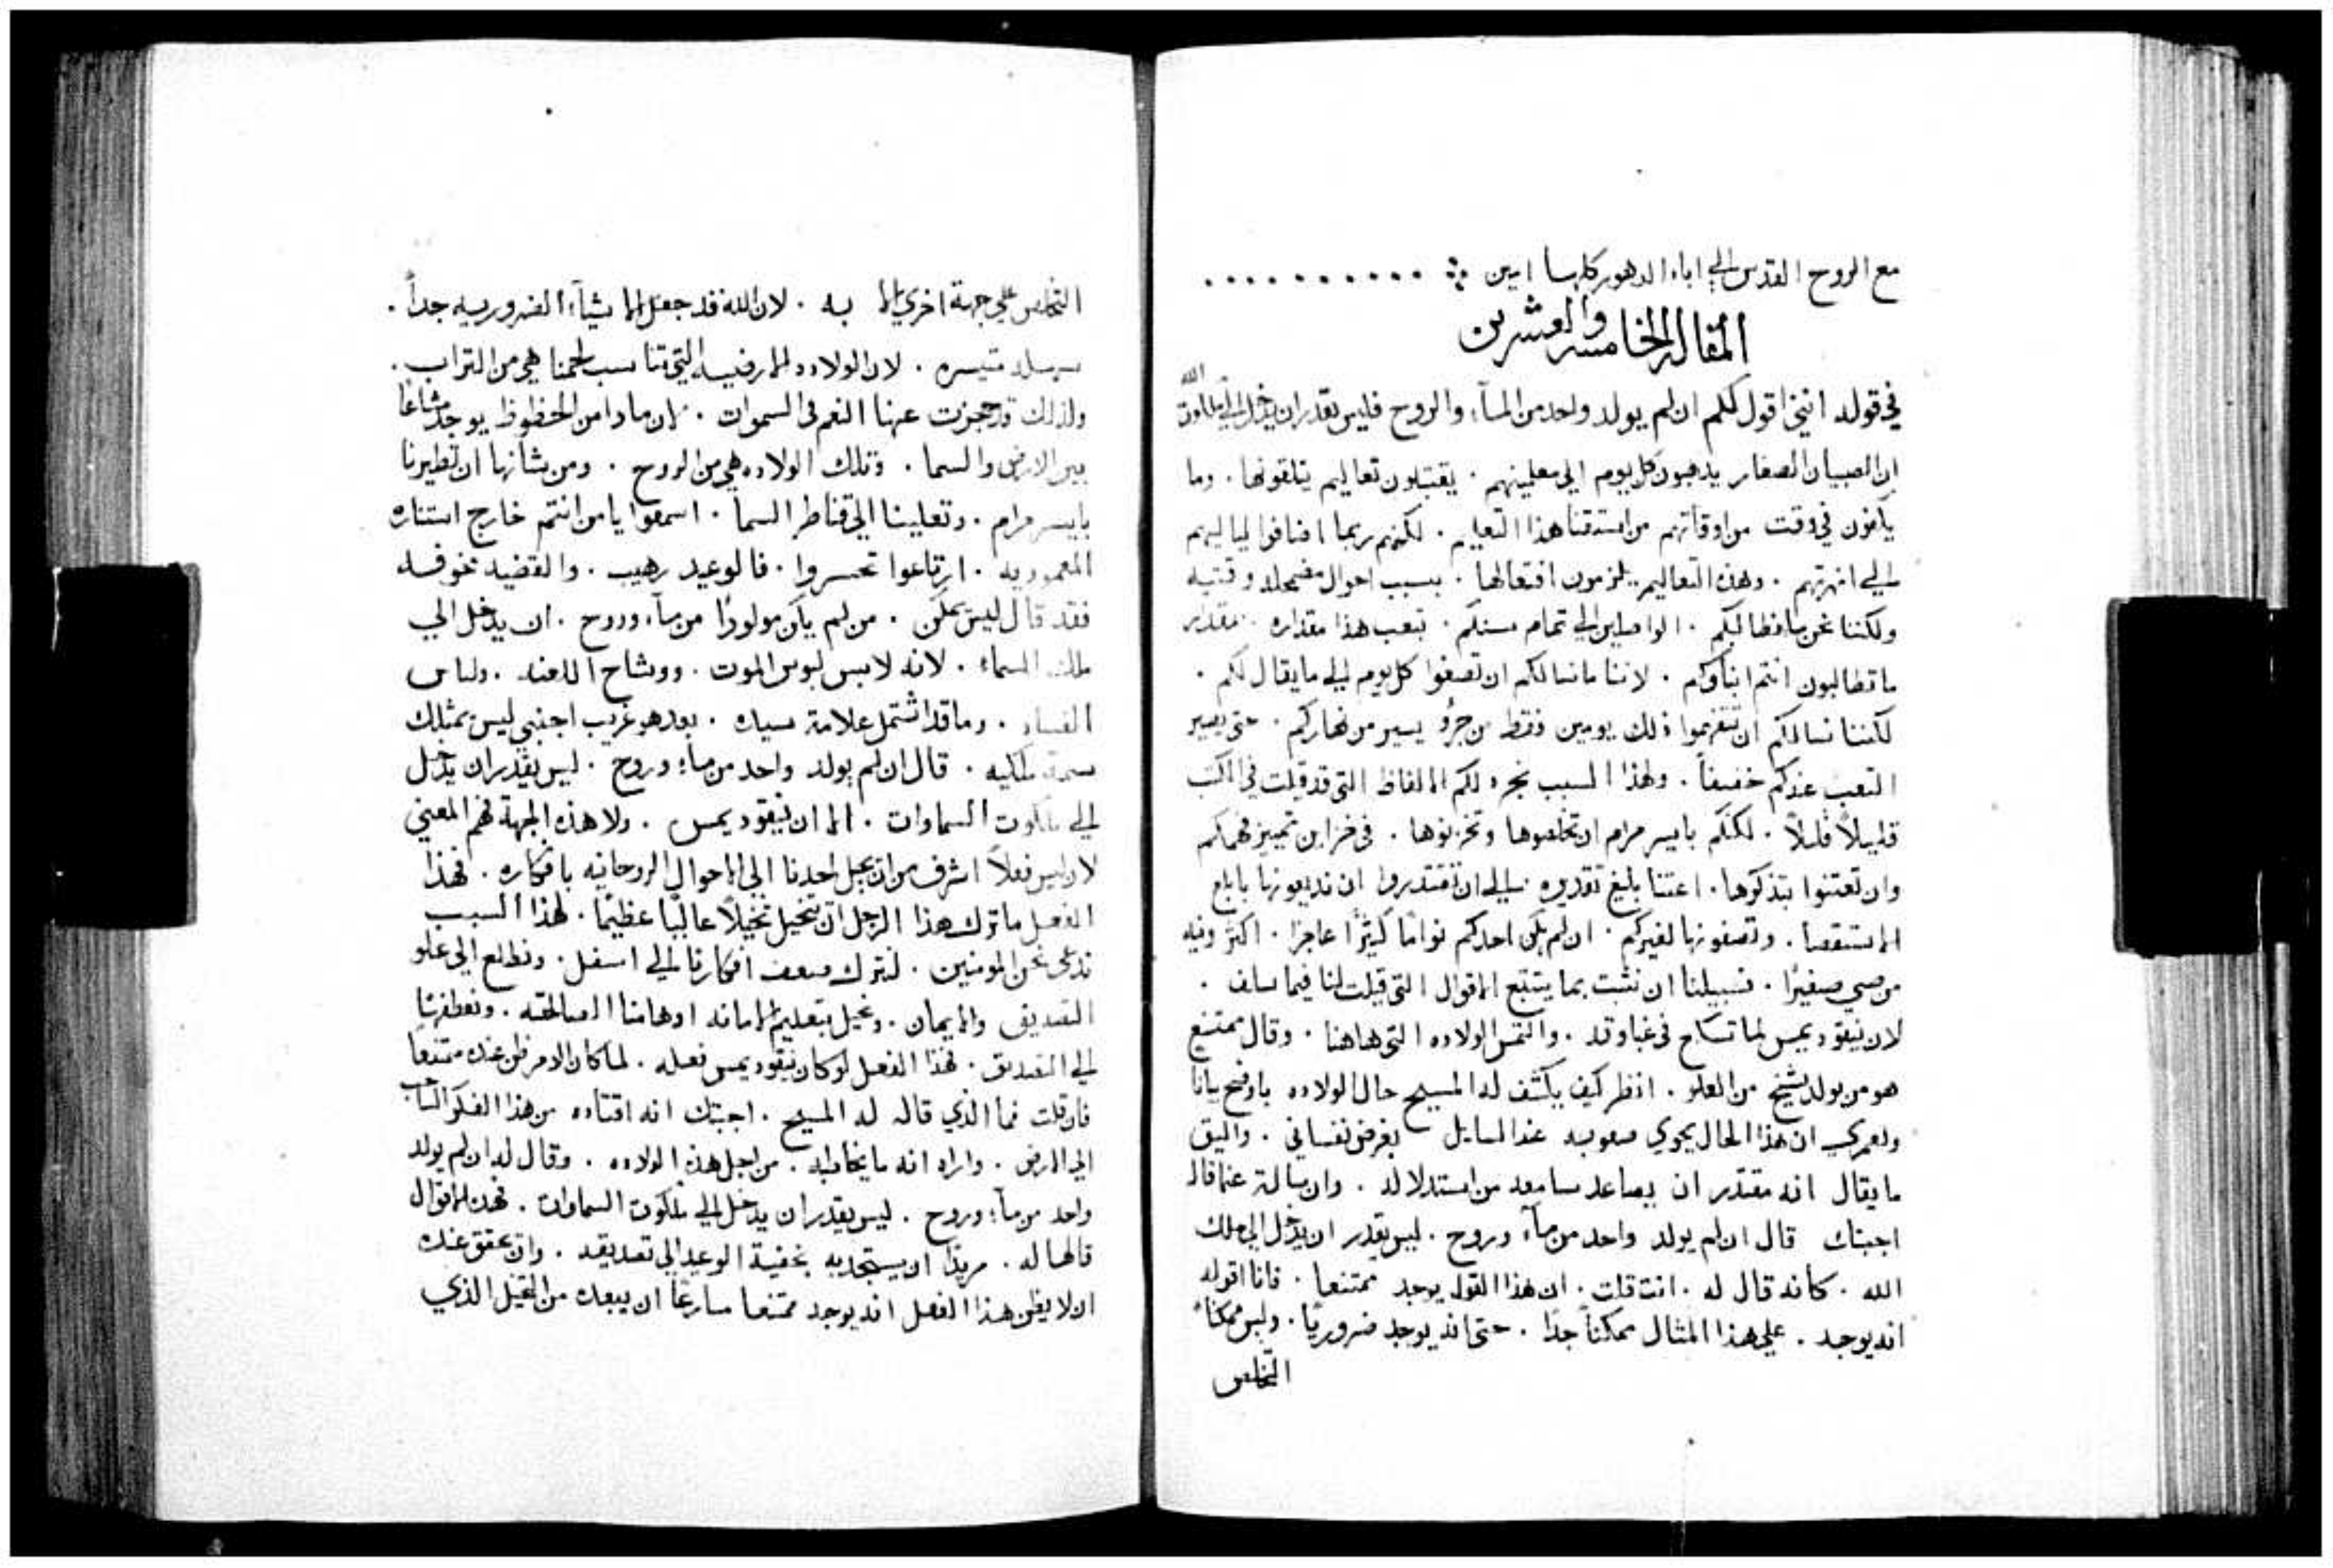 مع الروح القدس الي اباد الدهور كلها امين ∴ . . . . . . . . . .
المقاله الخامسه والعشرين
في قوله انني اقول لكم ان لم يولد واحد من المآء والروح فليس يقدر ان يدخل الي ملكوت الله
ان الصبيان الصغار يذهبون كل يوم الي معلمينهم . يقتبلون تعاليم يتلقونها . وما
يكفون في وقت من اوقاتهم من استقتنا هذا التعليم . لكنهم ربما اضافوا لياليهم
الي انهرتهم . وهذه التعاليم يلزمون افتعالها . بسبب احوال مضمحله وقتيه
ولكننا نحن ما نطالبكم . الواصلين الي تمام سنكم . بتعب هذا مقداره . مقدار
ما تطالبون انتم ابناوكم . لاننا ما نسالكم ان تصغوا كل يوم الي ما يقال لكم .
لكننا نسالكم ان تتفهموا ذلك يومين فقط من جزؤ يسير من نهاركم . حتي يصير
التعب عندكم خفيفاً . ولهذا السبب نجزء لكم الالفاظ التي قد قيلت في الكتب
قليلاً قليلاً . لكنكم بايسر مرام ان تخلصوها وتخزنوها . في خزاين تمييز فهمكم
وان تعتنوا بتذكرها . اعتنآ بليغ تقديره الي ان تقتدروا ان تذيعونها بابلغ
الاستقصا . وتصفونها لغيركم . ان لم يكن احدكم نواماً كثيرًا عاجزا . اكثر ونيه
من صبي صغيرًا . فسبيلنا ان نتشبت بما يتبع الاقوال التي قيلت لنا فيما سلف .
لان نيقوديمس لما تسكح في غباوته . والتمس الولاده التي هاهنا . وقال ممتنع
هو من يولد شيخ من العلو . انظر كيف يكشف له المسيح حال الولاده باوضح بيانا
ولعمري ان هذا الحال يحوي صعوبه عند السايل بغرض نفساني . واليق
ما يقال انه مقتدر ان يصاعد سامعه من استدلاله . وان سالت عما قاله
اجبتك قال ان لم يولد واحد من مآء وروح . ليس يقدر ان يدخل الي ملك
الله . كانه قال له . انت قلت . ان هذا القول يوجد ممتنعا . فانا اقوله
انه يوجد . علي هذا المثال ممكناً جدًا . حتي انه يوجد ضروريًا . وليس ممكناً
التخلص
التخلص علي جهة اخري الا به . لان الله قد جعل الاشيآء الضروريه جداً .
سهله متيسره . لان الولاده الارضيه التي تناسب لحمنا هي من التراب .
ولذلك قد حجزت عنها النعم في السموات . لان ماذا من الحظوظ يوجد مشاعًا
بين الارض والسما . وتلك الولاده هي من الروح . ومن شانها ان تطيرنا
بايسر مرام . وتعلينا الي قناطر السما . اسمعوا يا من انتم خارج استناره
المعموديه . ارتاعوا تحسروا . فالوعيد رهيب . والقضيه مخوفه
فقد قال ليس يمكن . من لم يكن مولودًا من مآء وروح . ان يدخل الي
ملك السماء . لانه لابس لبوس الموت . ووشاح اللعنه . ولباس
الفساد . وما قد اشتمل علامة سيده . بعد هو غريب اجنبي ليس يمتلك
سمة ملكيه . قال ان لم يولد واحد من مآء وروح . ليس يقدر ان يدخل
الي ملكوت السماوات . الا ان نيقوديمس . ولا هذه الجهة فهم المعني
لان ليس فعلاً اشرف من ان يجل احدنا الي الاحوال الروحانيه بافكاره . فهذا
الفعل ما ترك هذا الرجل ان يتخيل تخيلاً عاليًا عظيمًا . لهذا السبب
ندعي نحن المومنين . لنترك ضعف افكارنا الي اسفل . ونطلع الي علو
التصديق والايمان . ونميل بتعليم الامانه اوهامنا الصالحه . ونعطفها
الي التصديق . فهذا الفعل لو كان نيقوديمس فعله . لما كان الامر ظن عنده ممتنعا
فان قلت فما الذي قاله له المسيح . اجبتك انه اقتاده من هذا الفكر الساحب
الي الارض . واراه انه ما يخاطبه . من اجل هذه الولاده . وقال له ان لم يولد
واحد من مآء وروح . ليس يقدر ان يدخل الي ملكوت السماوات . فهذه الاقوال
قالها له . مريدًا ان يستجذبه بخفية الوعيد الي تصديقه . وان يحقق عنده
ان لا يظن هذا الفعل انه يوجد ممتنعا مسارعًا ان يبعده من التخيل الذي